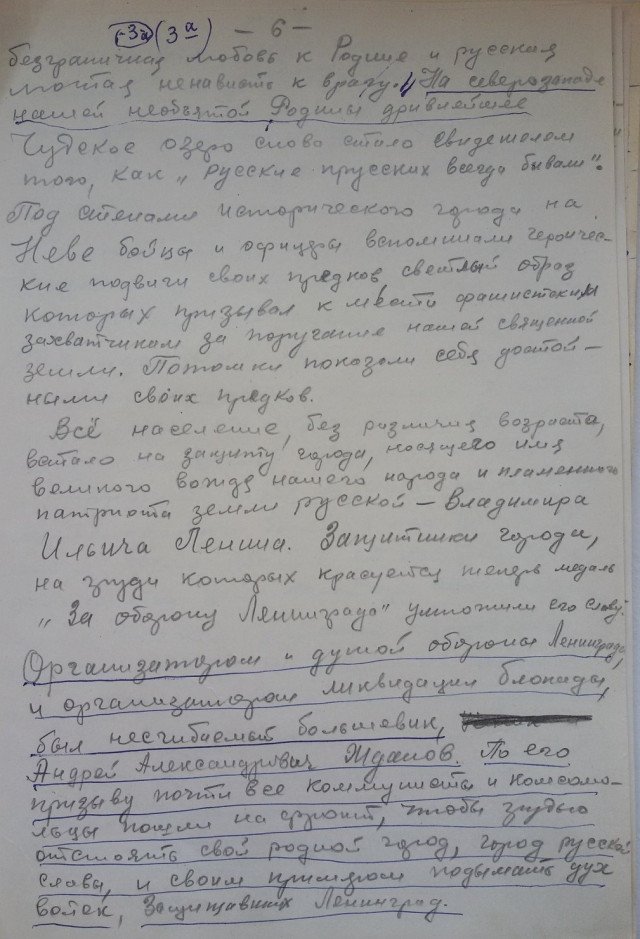 -3а (3а) — 6 —
безграничная любовь к Родине и русская
лютая ненависть к врагу. На северозападе
нашей необъятой Родины дривнейшее
Чудское озеро снова стало свидетелем
того, как „русские прусских всегда бывали“.
Под стенами исторического города на
Неве бойцы и офицеры вспоминали героичес-
кие подвиги своих предков светлый образ
которых призывал к мести фашистским
захватчикам за поругание нашей священной
земли. Потомки показали себя достой-
ными своих предков.
Всё население, без различия возраста,
встало на защиту города, носящего имя
великого вождя нашего народа и пламенного
патриота земли русской — Владимира
Ильича Ленина. Защитники города,
на груди которых красуется теперь медаль
„За оборону Ленинграда“ умножили его славу.
Организатором и душой обороны Ленинграда,
и организатором ликвидации блокады,
был несгибаемый большевик,
Андрей Александрович Жданов. По его
призыву почти все коммунисты и комсомо-
льцы пошли на фронт, чтобы грудью
отстоять свой родной город, город русской
славы, и своим примером подымать дух
войск, защищавших Ленинград.